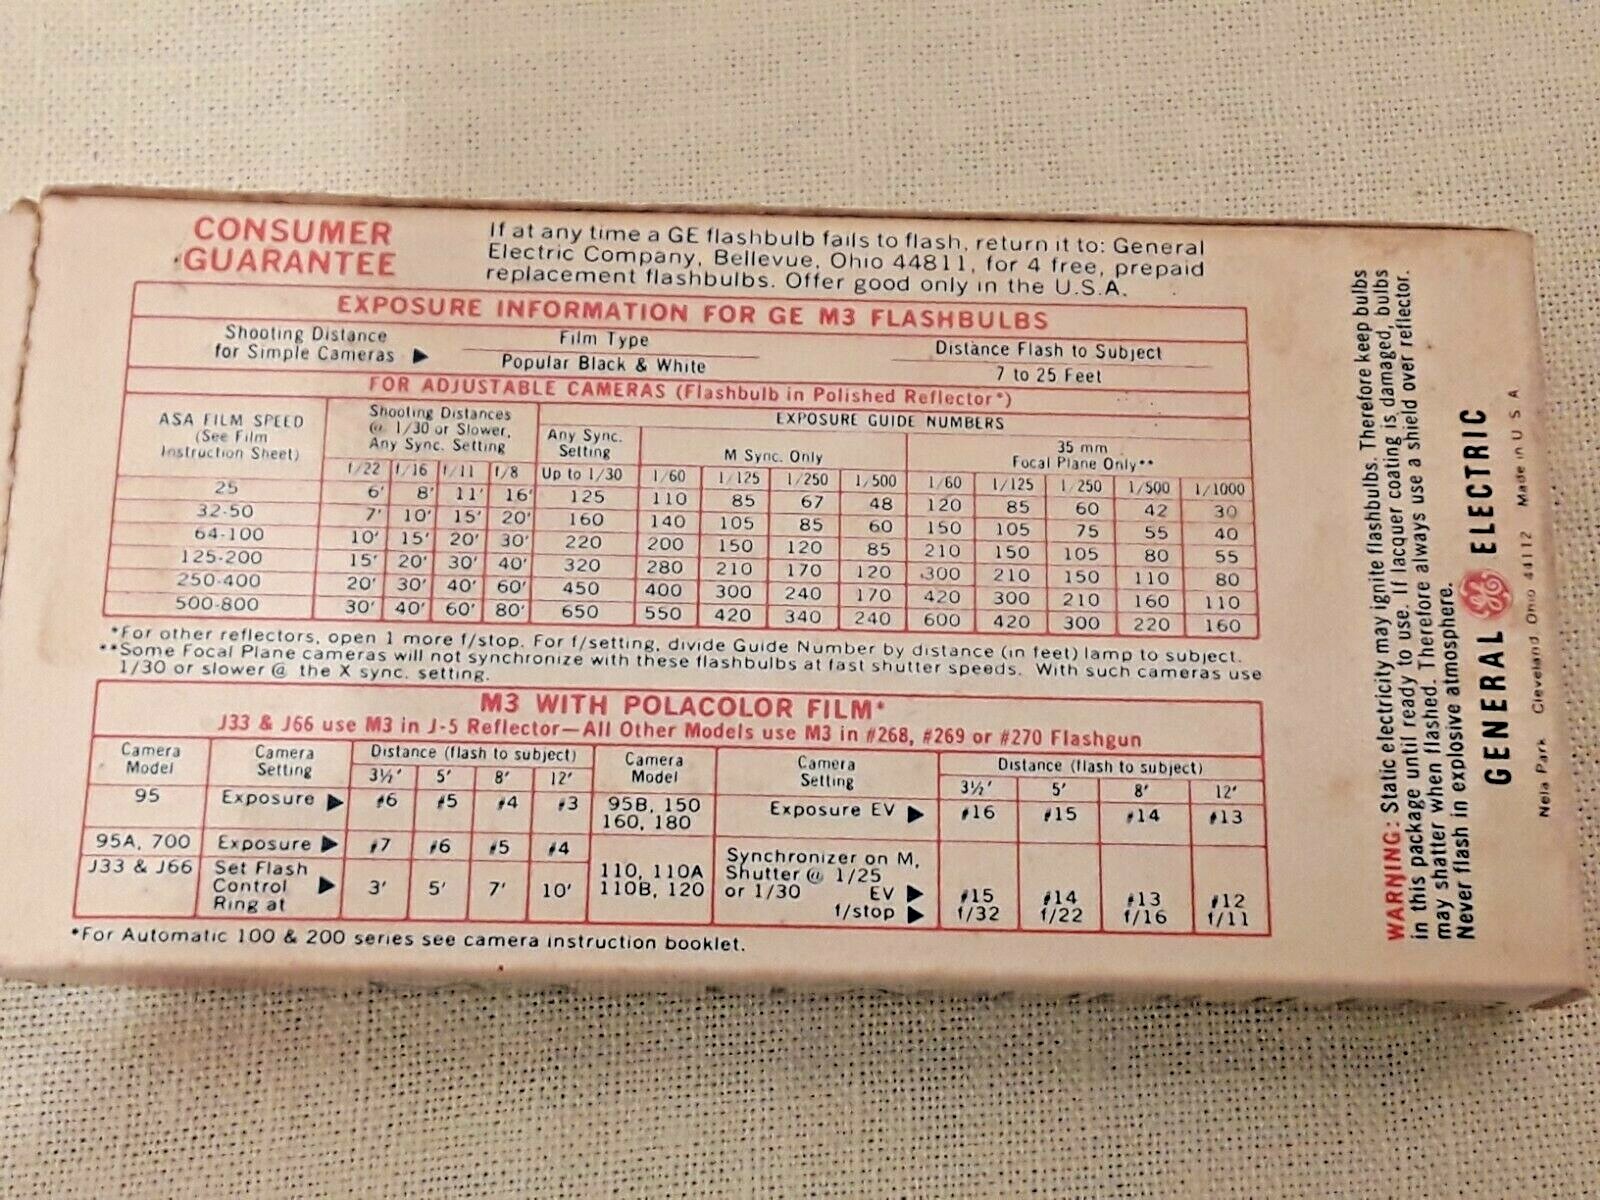 CONSUMER
GUARANTEE
If at any time a GE flashbulb fails to flash, return it to: General
Electric Company, Bellevue, Ohio 44811, for 4 free, prepaid
replacement flashbulbs. Offer good only in the U.S.A.
EXPOSURE INFORMATION FOR GE M3 FLASHBULBS
Shooting Distance
for Simple Cameras ▶
Film Type
Popular Black & White
Distance Flash to Subject
7 to 25 Feet
FOR ADJUSTABLE CAMERAS (Flashbulb in Polished Reflector*)
ASA FILM SPEED
(See Film
Instruction Sheet)
Shooting Distances
@ 1/30 or Slower,
Any Sync. Setting
EXPOSURE GUIDE NUMBERS
Any Sync.
Setting
M Sync. Only
35 mm
Focal Plane Only**
f/22 f/16 f/11 f/8 Up to 1/30 1/60 1/125 1/250 1/500 1/60 1/125 1/250 1/500 1/1000
25 6' 8' 11' 16' 125 110 85 67 48 120 85 60 42 30
32-50 7' 10' 15' 20' 160 140 105 85 60 150 105 75 55 40
64-100 10' 15' 20' 30' 220 200 150 120 85 210 150 105 80 55
125-200 15' 20' 30' 40' 320 280 210 170 120 300 210 150 110 80
250-400 20' 30' 40' 60' 450 400 300 240 170 420 300 210 160 110
500-800 30' 40' 60' 80' 650 550 420 340 240 600 420 300 220 160
*For other reflectors, open 1 more f/stop. For f/setting, divide Guide Number by distance (in feet) lamp to subject.
**Some Focal Plane cameras will not synchronize with these flashbulbs at fast shutter speeds. With such cameras use
1/30 or slower @ the X sync. setting.
M3 WITH POLACOLOR FILM*
J33 & J66 use M3 in J-5 Reflector—All Other Models use M3 in #268, #269 or #270 Flashgun
Camera
Model
Camera
Setting
Distance (flash to subject)
3½' 5' 8' 12'
Camera
Model
Camera
Setting
Distance (flash to subject)
3½' 5' 8' 12'
95 Exposure ▶ #6 #5 #4 #3
95A, 700 Exposure ▶ #7 #6 #5 #4
J33 & J66 Set Flash
Control ▶ 3' 5' 7' 10'
Ring at
95B, 150
160, 180
Exposure EV ▶ #16 #15 #14 #13
110, 110A
110B, 120
Synchronizer on M,
Shutter @ 1/25
or 1/30 EV ▶ #15 #14 #13 #12
f/stop ▶ f/32 f/22 f/16 f/11
*For Automatic 100 & 200 series see camera instruction booklet.
WARNING: Static electricity may ignite flashbulbs. Therefore keep bulbs
in this package until ready to use. If lacquer coating is damaged, bulbs
may shatter when flashed. Therefore always use a shield over reflector.
Never flash in explosive atmosphere.
GENERAL GE ELECTRIC
Nela Park Cleveland, Ohio 44112 Made in U S A